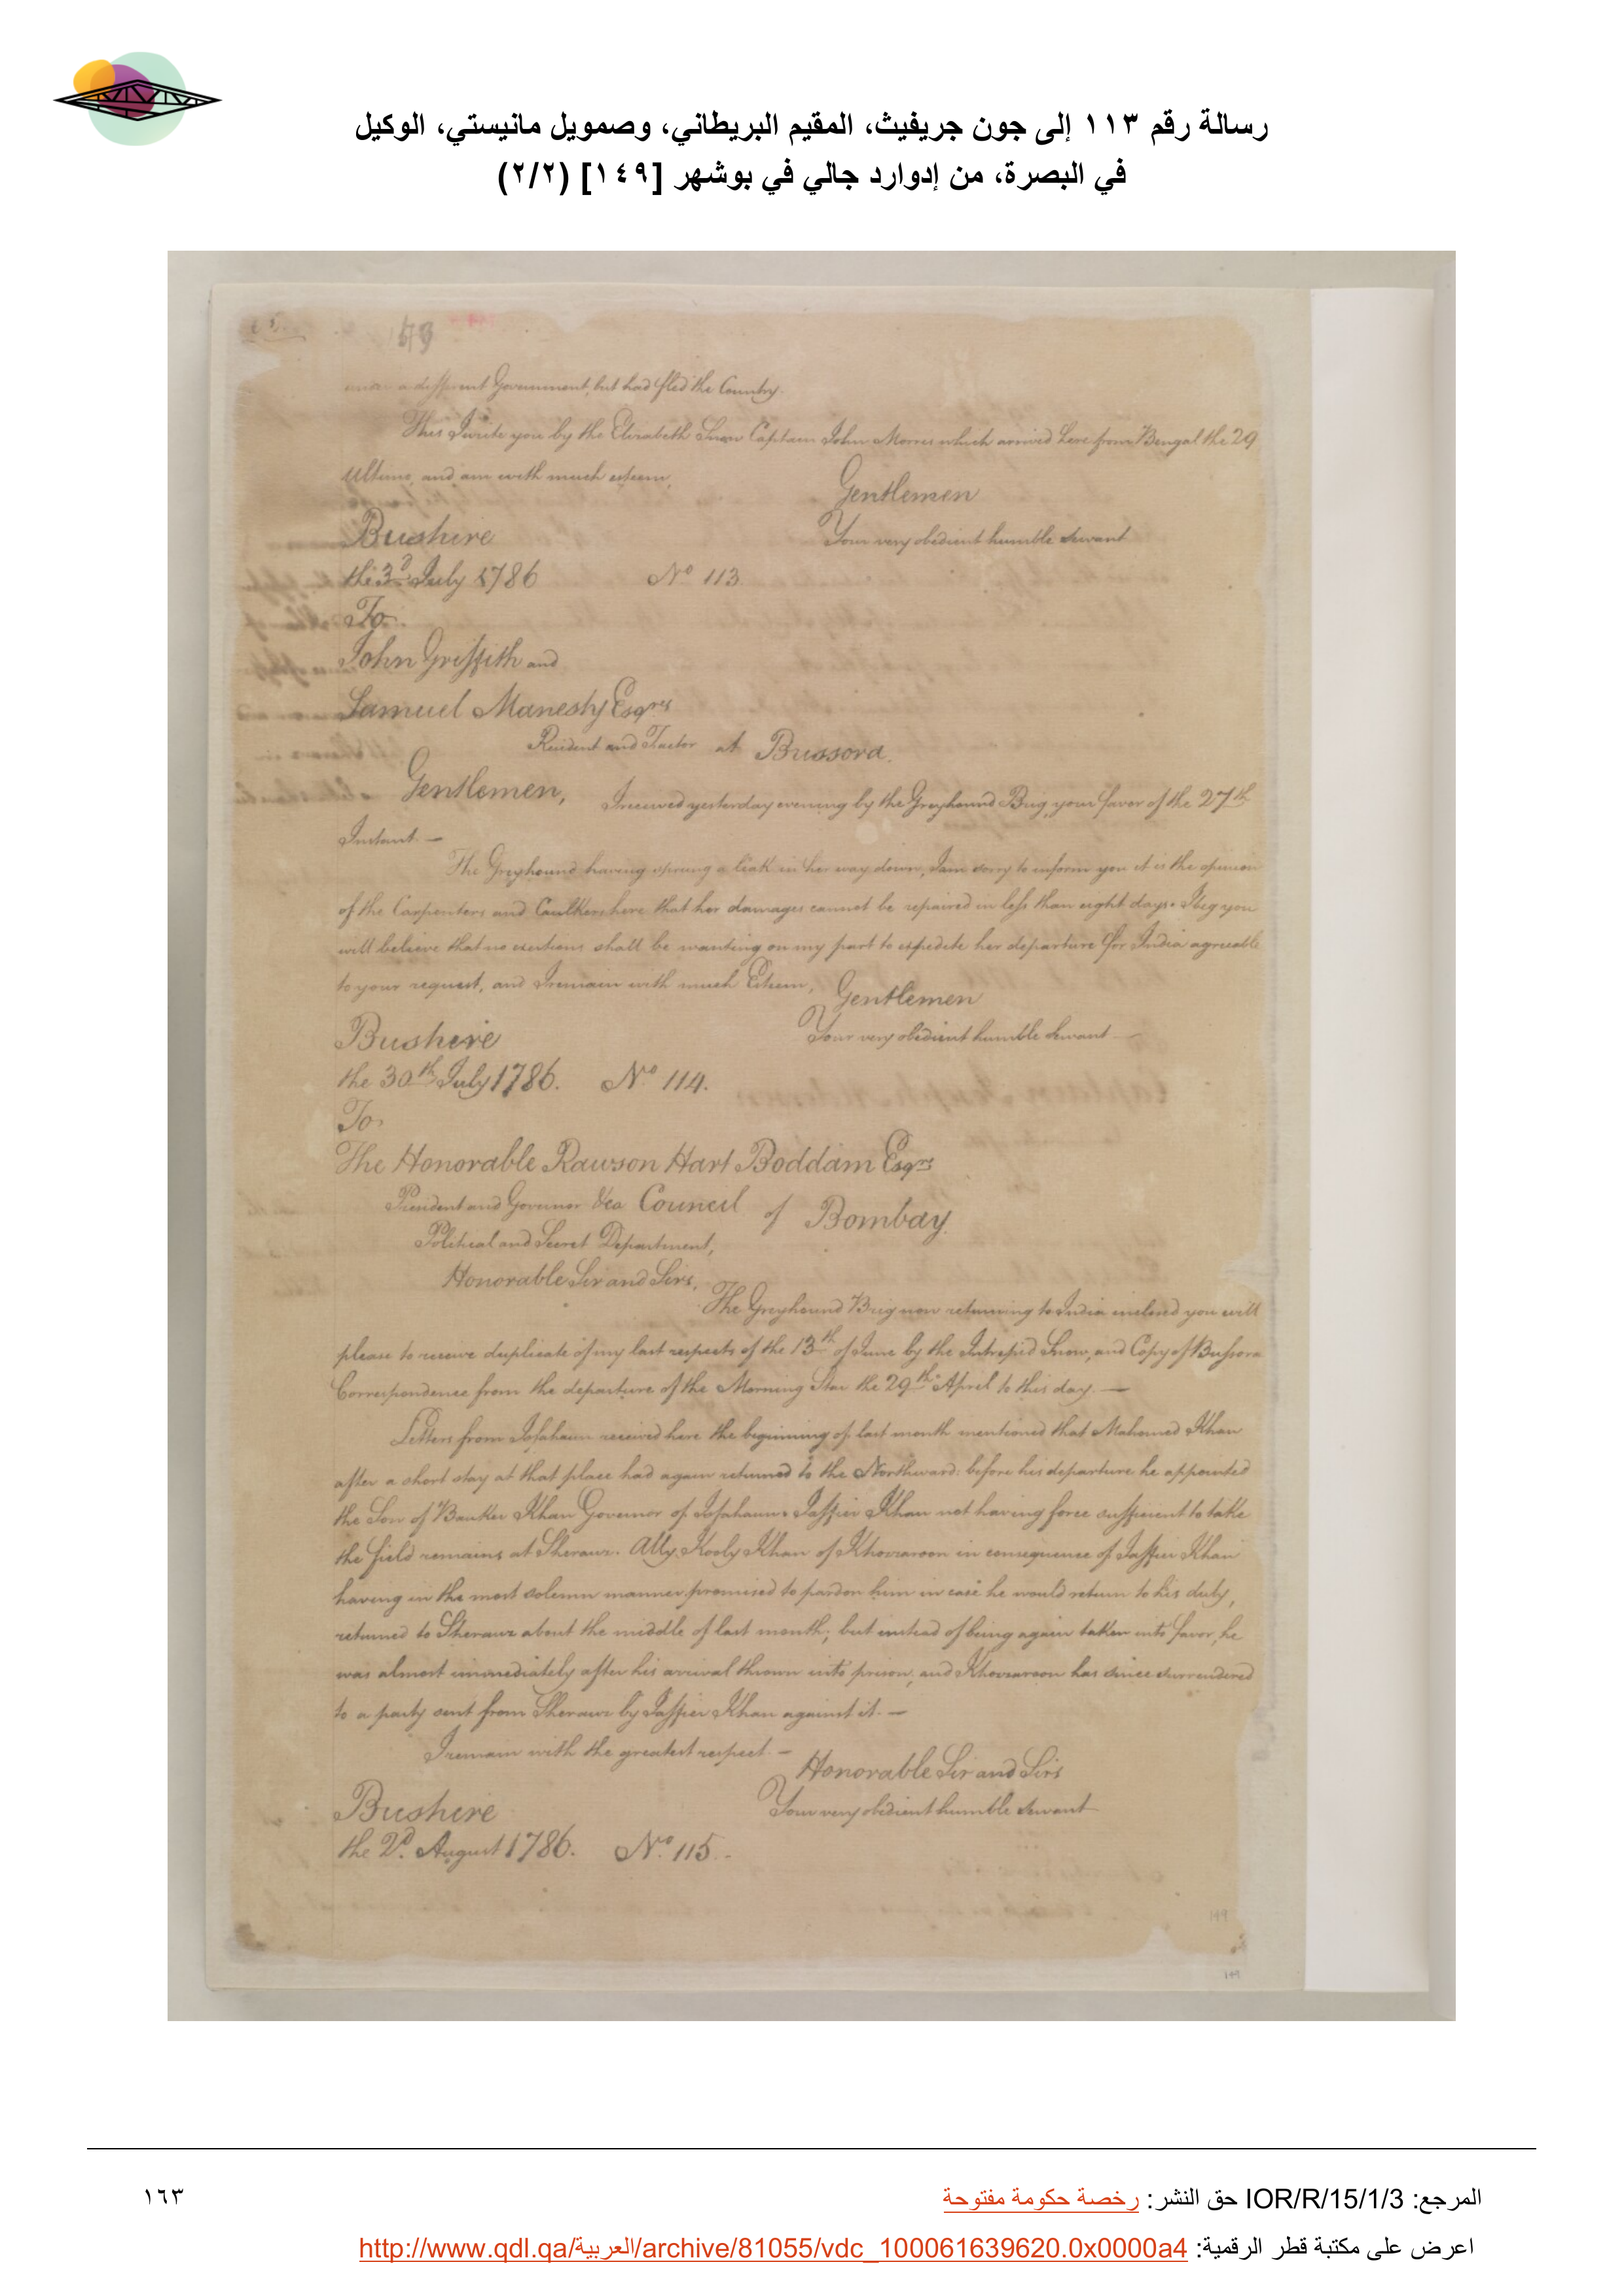 رسالة رقم ١١٣ إلى جون جريفيث، المقيم البريطاني، وصمويل مانيستي، الوكيل
في البصرة، من إدوارد جالي في بوشهر [١٤٩] (٢/٢)
a different Government, but had fled the Country.
This I write you by the Elizabeth Snow Captain John Morris which arrived here from Bengal the 29
Ultimo, and am with much esteem,
Gentlemen
Bushire
Your very obedient humble Servant
the 3d July 1786 No 113
To
John Griffith and
Samuel Manesty Esqrs
Resident and Factor at Bussora.
Gentlemen, I received yesterday evening by the Greyhound Brig, your favor of the 27th
Instant. —
The Greyhound having sprung a leak in her way down, I am sorry to inform you it is the opinion
of the Carpenters and Caulkers here that her damages cannot be repaired in less than eight days. I beg you
will believe that no exertions shall be wanting on my part to expedite her departure for India agreeable
to your request, and I remain with much Esteem, Gentlemen
Bushire
Your very obedient humble Servant —
the 30th July 1786. No 114.
To
The Honorable Rawson Hart Boddam Esqre
President and Governor &ca Council of Bombay
Political and Secret Department,
Honorable Sir and Sirs,
The Greyhound Brig now returning to India inclosed you will
please to receive duplicate of my last respects of the 13th of June by the Intrepid Snow, and Copy of Bussora
Correspondence from the departure of the Morning Star the 29th April to this day. —
Letters from Isfahaun received here the beginning of last month mentioned that Mahomed Khan
after a short stay at that place had again returned to the Northward: before his departure he appointed
the Son of Bauker Khan Governor of Isfahaun. Jaffier Khan not having force sufficient to take
the field remains at Sherauz. Ally Kooly Khan of Khozaroon in consequence of Jaffier Khan
having in the most solemn manner promised to pardon him in case he would return to his duty,
returned to Sherauz about the middle of last month; but instead of being again taken into favor, he
was almost immediately after his arrival thrown into prison, and Khozaroon has since surrendered
to a party sent from Sherauz by Jaffier Khan against it. —
I remain with the greatest respect. —
Honorable Sir and Sirs
Bushire
Your very obedient humble Servant
the 2d August 1786. No 115.
149
149
المرجع: IOR/R/15/1/3 حق النشر: رخصة حكومة مفتوحة
١٦٣
اعرض على مكتبة قطر الرقمية: http://www.qdl.qa/العربية/archive/81055/vdc_100061639620.0x0000a4